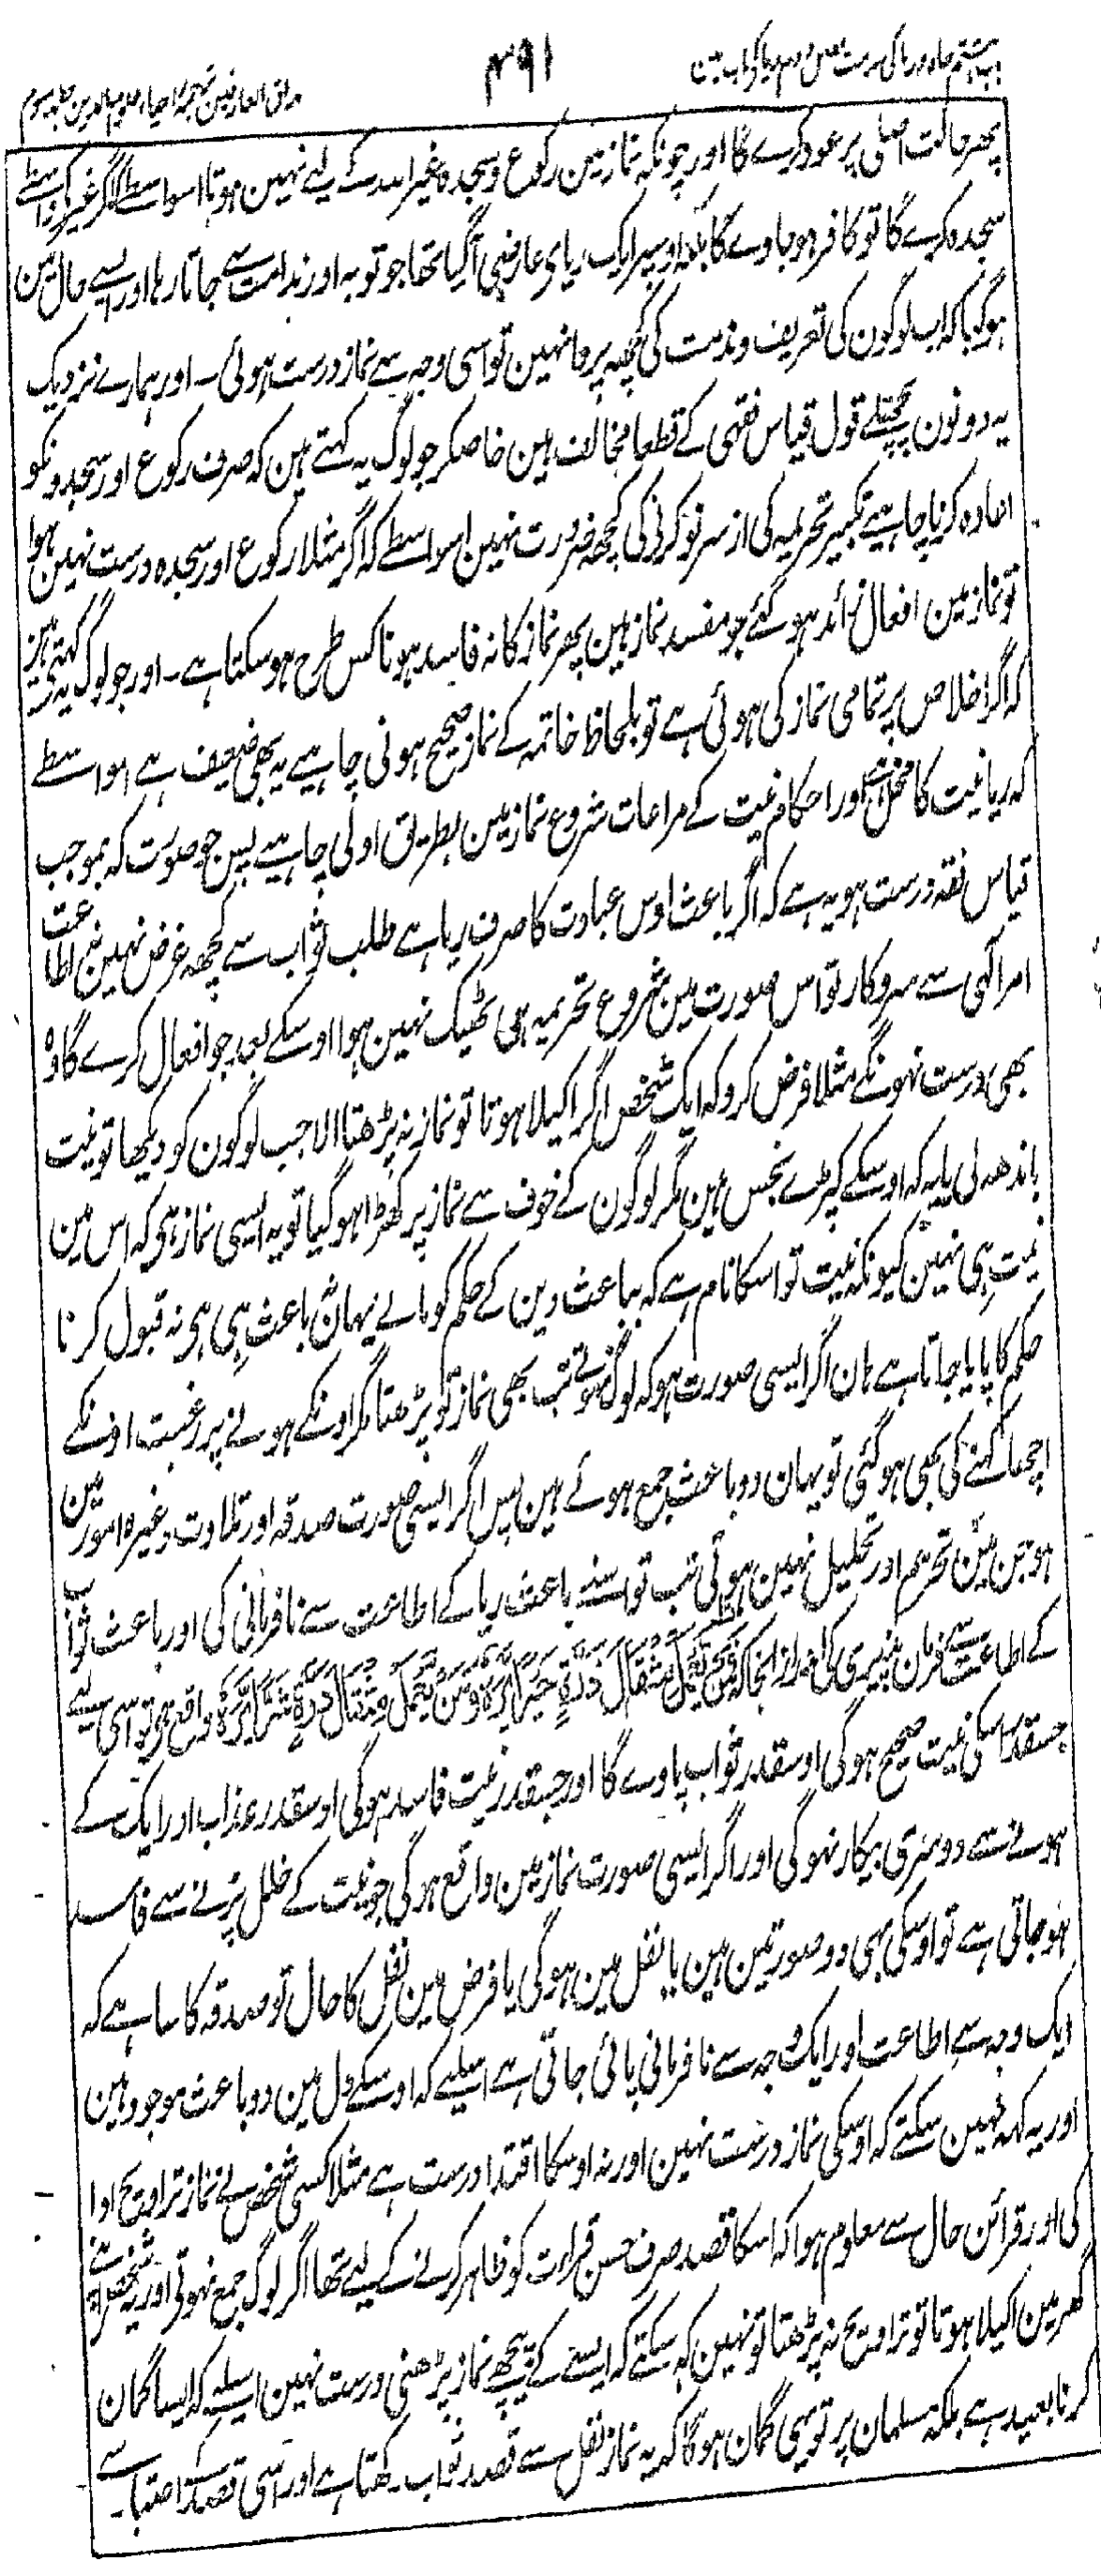 ۳۹۱
مذاق العارفین ترجمہ احیاء علوم الدین جلد سوم
پھر حالت اصلی پر عود کرے گا اور چونکہ نماز مین رکوع و سجدہ غیر اللہ کے لیے نہین ہوتا اسواسطے کہ اگر غیر کے واسطے
سجدہ کرے گا تو کافر ہو جاوے گا بلکہ اوسپر ایک ریای عارضی آگیا تھا جو توبہ اور ندامت سے جاتا رہا اور ایسے حال مین
ہو گیا کہ اب لوگون کی تعریف و مذمت کی کچھ پروا نہین تو اسی وجہ سے نماز درست ہوئی ۔ اور ہمارے نزدیک
یہ دونون پچھلے قول قیاس فقہی کے قطعا مخالف ہین خاصکر جو لوگ یہ کہتے ہین کہ صرف رکوع اور سجدونکو
اعادہ کرنا چاہیے تکبیر تحریمہ کی از سر نو کرنی کی کچھ ضرورت نہین اسواسطے کہ اگر مثلا رکوع اور سجدہ درست نہین ہوا
تو نماز مین افعال زائد ہو گئے جو مفسد نماز ہین پھر نماز کا نہ فاسد ہونا کس طرح ہو سکتا ہے ۔ اور جو لوگ یہ کہتی ہین
کہ اگر اخلاص پر تمامی نماز کی ہوئی ہے تو بلحاظ خاتمہ کے نماز صحیح ہونی چاہیے یہ بھی ضعیف ہے اسواسطے
کہ ریا نیت کا مخل ہے اور احکام نیت کے مراعات شروع نماز مین بطریق اولی چاہیے پس جو صورت کہ بموجب
قیاس فقہ درست ہو یہ ہے کہ اگر باعث اوس عبادت کا صرف ریا ہے طلب ثواب سے کچھ غرض نہین نہ اطاعت
امر الٰہی سے سروکار تو اس صورت مین شروع تحریمہ ہی ٹھیک نہین ہوا اوسکے بعد جو افعال کرے گا وہ
بھی درست نہونگے مثلا فرض کرو کہ ایک شخص اگر اکیلا ہوتا تو نماز نہ پڑھتا الا جب لوگون کو دیکھا تو نیت
باندھ لی یا یہ کہ اوسکے کپڑے نجس ہین مگر لوگون کے خوف سے نماز پر کھڑا ہو گیا تو یہ ایسی نماز ہی کہ اس مین
نیت ہی نہین کیونکہ نیت تو اسکا نام ہے کہ بباعث دین کے حکم کو مانے یہان نہ باعث ہی ہی نہ قبول کرنا
حکم کا پایا جاتا ہے ہان اگر ایسی صورت ہو کہ لوگ نہوتے تب بھی نماز تو پڑھتا مگر اونکے ہونے پر رغبت اونکے
اچھا کہنے کی بھی ہو گئی تو یہان دو باعث جمع ہوئے ہین پس اگر ایسی صورت صدقہ اور تلاوت وغیرہ امور مین
ہو جن مین تحریم اور تحلیل نہین ہوتی تب تو اسنے باعث ریا کے اطاعت سے نافرمانی کی اور باعث ثواب
کے اطاعت سے فرمان پذیری کی اور از انجا کہ فَمَنْ يَّعْمَلْ مِثْقَالَ ذَرَّةٍ خَيْرًا يَّرَهٗ وَمَنْ يَّعْمَلْ مِثْقَالَ ذَرَّةٍ شَرًّا يَّرَهٗ واقع ہی تو اسی لیے
جسقدر اسکی نیت صحیح ہوگی اوسقدر ثواب پاوے گا اور جسقدر نیت فاسد ہوگی اوسقدر عذاب اور ایک کے
ہونے سے دوسری بیکار نہوگی اور اگر ایسی صورت نماز مین واقع ہوگی جو نیت کے خلل پڑنے سے فاسد
ہو جاتی ہے تو اوسکی بھی دو صورتین ہین یا نفل مین ہوگی یا فرض مین نفل کا حال تو صدقہ کا سا ہے کہ
ایک وجہ سے اطاعت اور ایک وجہ سے نافرمانی پائی جاتی ہے اسلیے کہ اوسکے دل مین دو باعث موجود ہین
اور یہ کہہ نہین سکتے کہ اوسکی نماز درست نہین اور نہ اوسکا اقتدا درست ہے مثلا کسی شخص نے نماز تراویح ادا
کی اور قرائن حال سے معلوم ہوا کہ اسکا قصد صرف حسن قرات کو ظاہر کرنے کے لیے تھا اگر لوگ جمع نہوتی اور یہ شخص اپنے
گھر مین اکیلا ہوتا تو تراویح نہ پڑھتا تو نہین کہ سکتے کہ ایسے کے پیچھے نماز پڑھنی درست نہین اسلیے کہ ایسا گمان
کرنا بعید ہے بلکہ مسلمان پر تو یہی گمان ہوگا کہ یہ نماز نفل سے قصد ثواب رکھتا ہے اور اسی قصد کے اعتبار سے